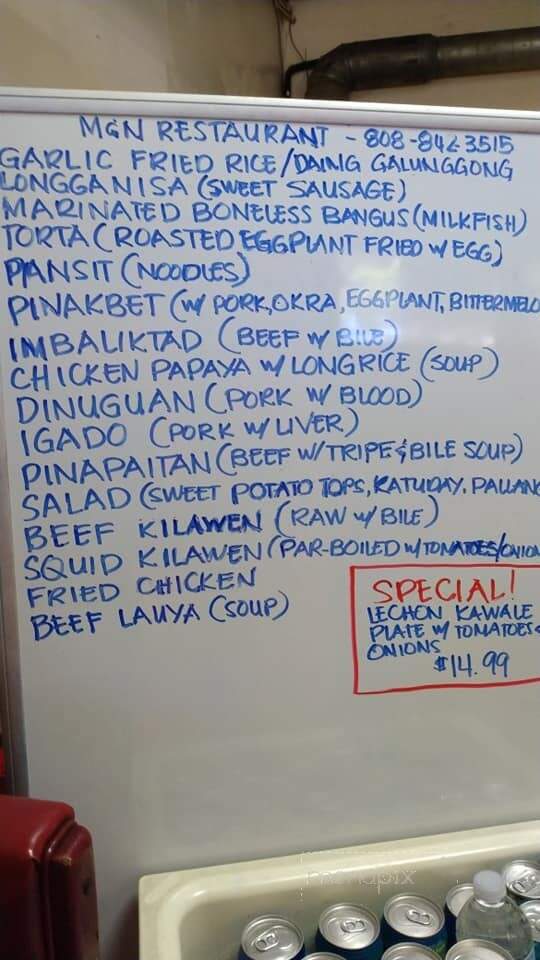 MGN RESTAURANT - 808-842-3515
GARLIC FRIED RICE/DAING GALUNGGONG
LONGGANISA (SWEET SAUSAGE)
MARINATED BONELESS BANGUS (MILKFISH)
TORTA (ROASTED EGGPLANT FRIED W/ EGG)
PANSIT (NOODLES)
PINAKBET (W/ PORK, OKRA, EGGPLANT, BITTERMELO
IMBALIKTAD (BEEF W/ BILE)
CHICKEN PAPAYA W/ LONGRICE (SOUP)
DINUGUAN (PORK W/ BLOOD)
IGADO (PORK W/ LIVER)
PINAPAITAN (BEEF W/ TRIPE & BILE SOUP)
SALAD (SWEET POTATO TOPS, KATUDAY, PALLANG
BEEF KILAWEN (RAW W/ BILE)
SQUID KILAWEN (PAR-BOILED W/ TOMATOES/ONION
FRIED CHICKEN
BEEF LAUYA (SOUP)
SPECIAL!
LECHON KAWALE
PLATE W/ TOMATOES &
ONIONS
$14.99
menupix